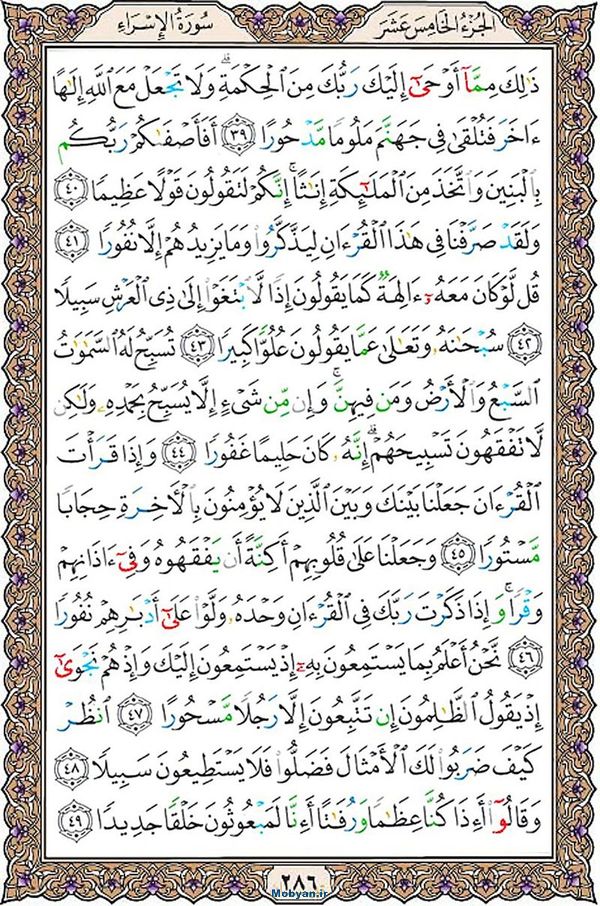 الجزء الخامس عشر
سورة الإسراء
ذَٰلِكَ مِمَّآ أَوْحَىٰٓ إِلَيْكَ رَبُّكَ مِنَ ٱلْحِكْمَةِ ۗ وَلَا تَجْعَلْ مَعَ ٱللَّهِ إِلَٰهًا
ءَاخَرَ فَتُلْقَىٰ فِى جَهَنَّمَ مَلُومًا مَّدْحُورًا ﴿٣٩﴾ أَفَأَصْفَىٰكُمْ رَبُّكُم
بِٱلْبَنِينَ وَٱتَّخَذَ مِنَ ٱلْمَلَٰٓئِكَةِ إِنَٰثًا ۚ إِنَّكُمْ لَتَقُولُونَ قَوْلًا عَظِيمًا ﴿٤٠﴾
وَلَقَدْ صَرَّفْنَا فِى هَٰذَا ٱلْقُرْءَانِ لِيَذَّكَّرُوا۟ وَمَا يَزِيدُهُمْ إِلَّا نُفُورًا ﴿٤١﴾
قُل لَّوْ كَانَ مَعَهُۥٓ ءَالِهَةٌ كَمَا يَقُولُونَ إِذًا لَّٱبْتَغَوْا۟ إِلَىٰ ذِى ٱلْعَرْشِ سَبِيلًا
﴿٤٢﴾ سُبْحَٰنَهُۥ وَتَعَٰلَىٰ عَمَّا يَقُولُونَ عُلُوًّا كَبِيرًا ﴿٤٣﴾ تُسَبِّحُ لَهُ ٱلسَّمَٰوَٰتُ
ٱلسَّبْعُ وَٱلْأَرْضُ وَمَن فِيهِنَّ ۚ وَإِن مِّن شَىْءٍ إِلَّا يُسَبِّحُ بِحَمْدِهِۦ وَلَٰكِن
لَّا تَفْقَهُونَ تَسْبِيحَهُمْ ۗ إِنَّهُۥ كَانَ حَلِيمًا غَفُورًا ﴿٤٤﴾ وَإِذَا قَرَأْتَ
ٱلْقُرْءَانَ جَعَلْنَا بَيْنَكَ وَبَيْنَ ٱلَّذِينَ لَا يُؤْمِنُونَ بِٱلْءَاخِرَةِ حِجَابًا
مَّسْتُورًا ﴿٤٥﴾ وَجَعَلْنَا عَلَىٰ قُلُوبِهِمْ أَكِنَّةً أَن يَفْقَهُوهُ وَفِىٓ ءَاذَانِهِمْ
وَقْرًا ۚ وَإِذَا ذَكَرْتَ رَبَّكَ فِى ٱلْقُرْءَانِ وَحْدَهُۥ وَلَّوْا۟ عَلَىٰٓ أَدْبَٰرِهِمْ نُفُورًا
﴿٤٦﴾ نَّحْنُ أَعْلَمُ بِمَا يَسْتَمِعُونَ بِهِۦٓ إِذْ يَسْتَمِعُونَ إِلَيْكَ وَإِذْ هُمْ نَجْوَىٰٓ
إِذْ يَقُولُ ٱلظَّٰلِمُونَ إِن تَتَّبِعُونَ إِلَّا رَجُلًا مَّسْحُورًا ﴿٤٧﴾ ٱنظُرْ
كَيْفَ ضَرَبُوا۟ لَكَ ٱلْأَمْثَالَ فَضَلُّوا۟ فَلَا يَسْتَطِيعُونَ سَبِيلًا ﴿٤٨﴾
وَقَالُوٓا۟ أَءِذَا كُنَّا عِظَٰمًا وَرُفَٰتًا أَءِنَّا لَمَبْعُوثُونَ خَلْقًا جَدِيدًا ﴿٤٩﴾
٢٨٦
Mobyan.ir